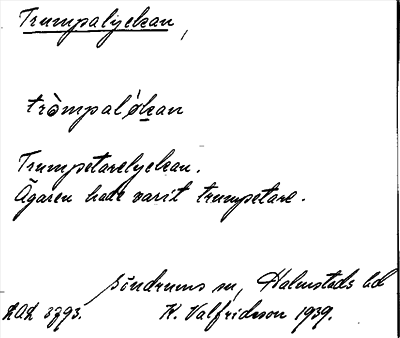 Trumpalyckan,
tròmpaløkan
Trumpetarelyckan.
Ägaren hade varit trumpetare.
Söndrums sn, Halmstads hd
LAL 3793. K. Valfridsson 1939.